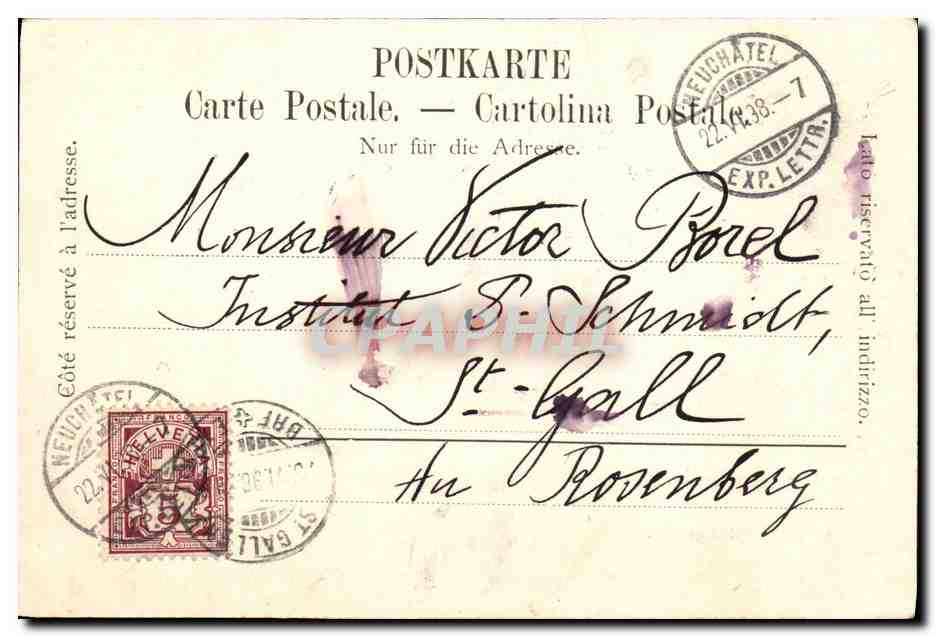 POSTKARTE
Carte Postale. — Cartolina Postale.
Nur für die Adresse.
NEUCHÂTEL
22.VI.98.–7
EXP. LETTR.
Côté réservé à l'adresse.
Lato riservato all' indirizzo.
Monsieur Victor Borel
Institut Dr Schmidt,
St-Gall
Au Rosenberg
CPAPHIL
NEUCHÂTEL
22.VI
FRANCO
HELVETIA
5
ST. GALLEN
BRF